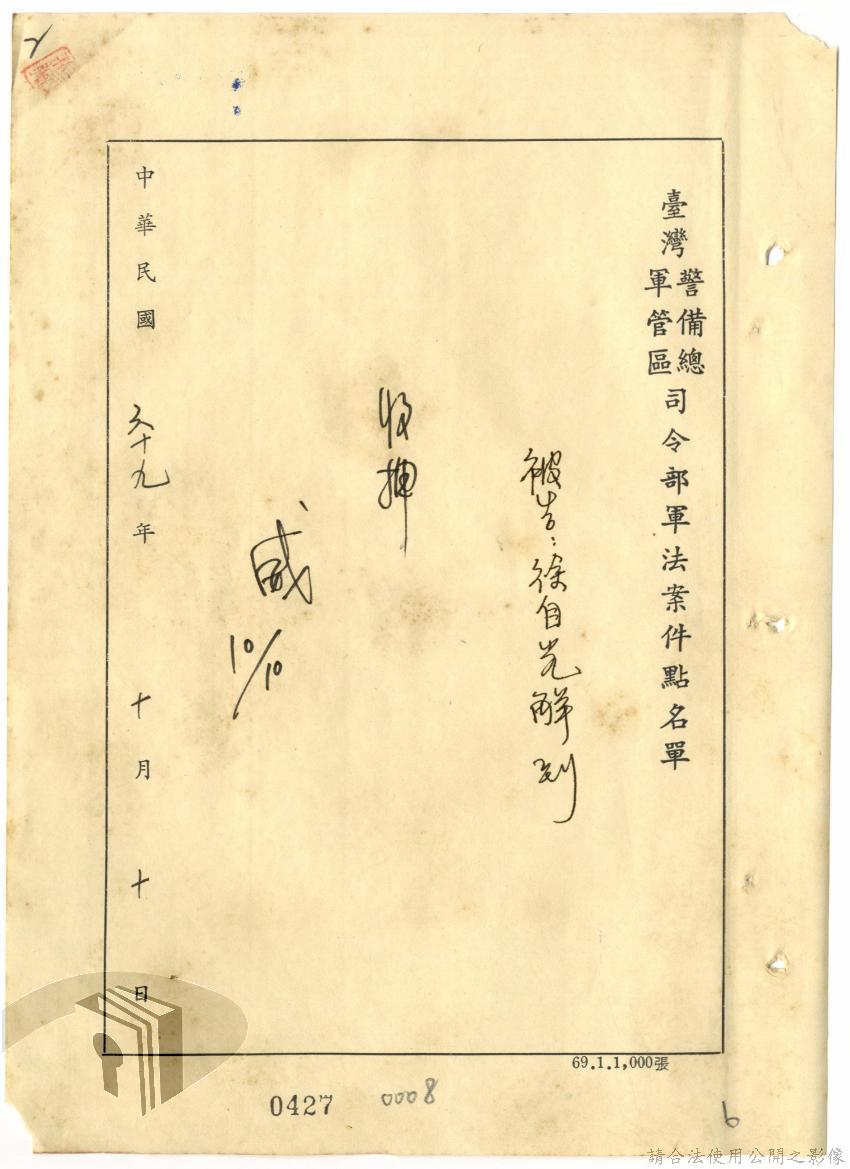 臺灣警備總軍管區司令部軍法案件點名單
被告:徐自光解到
收押
威
10/10
中華民國六十九年十月十日
69.1.1,000張
0427
0008
6
請合法使用公開之影像